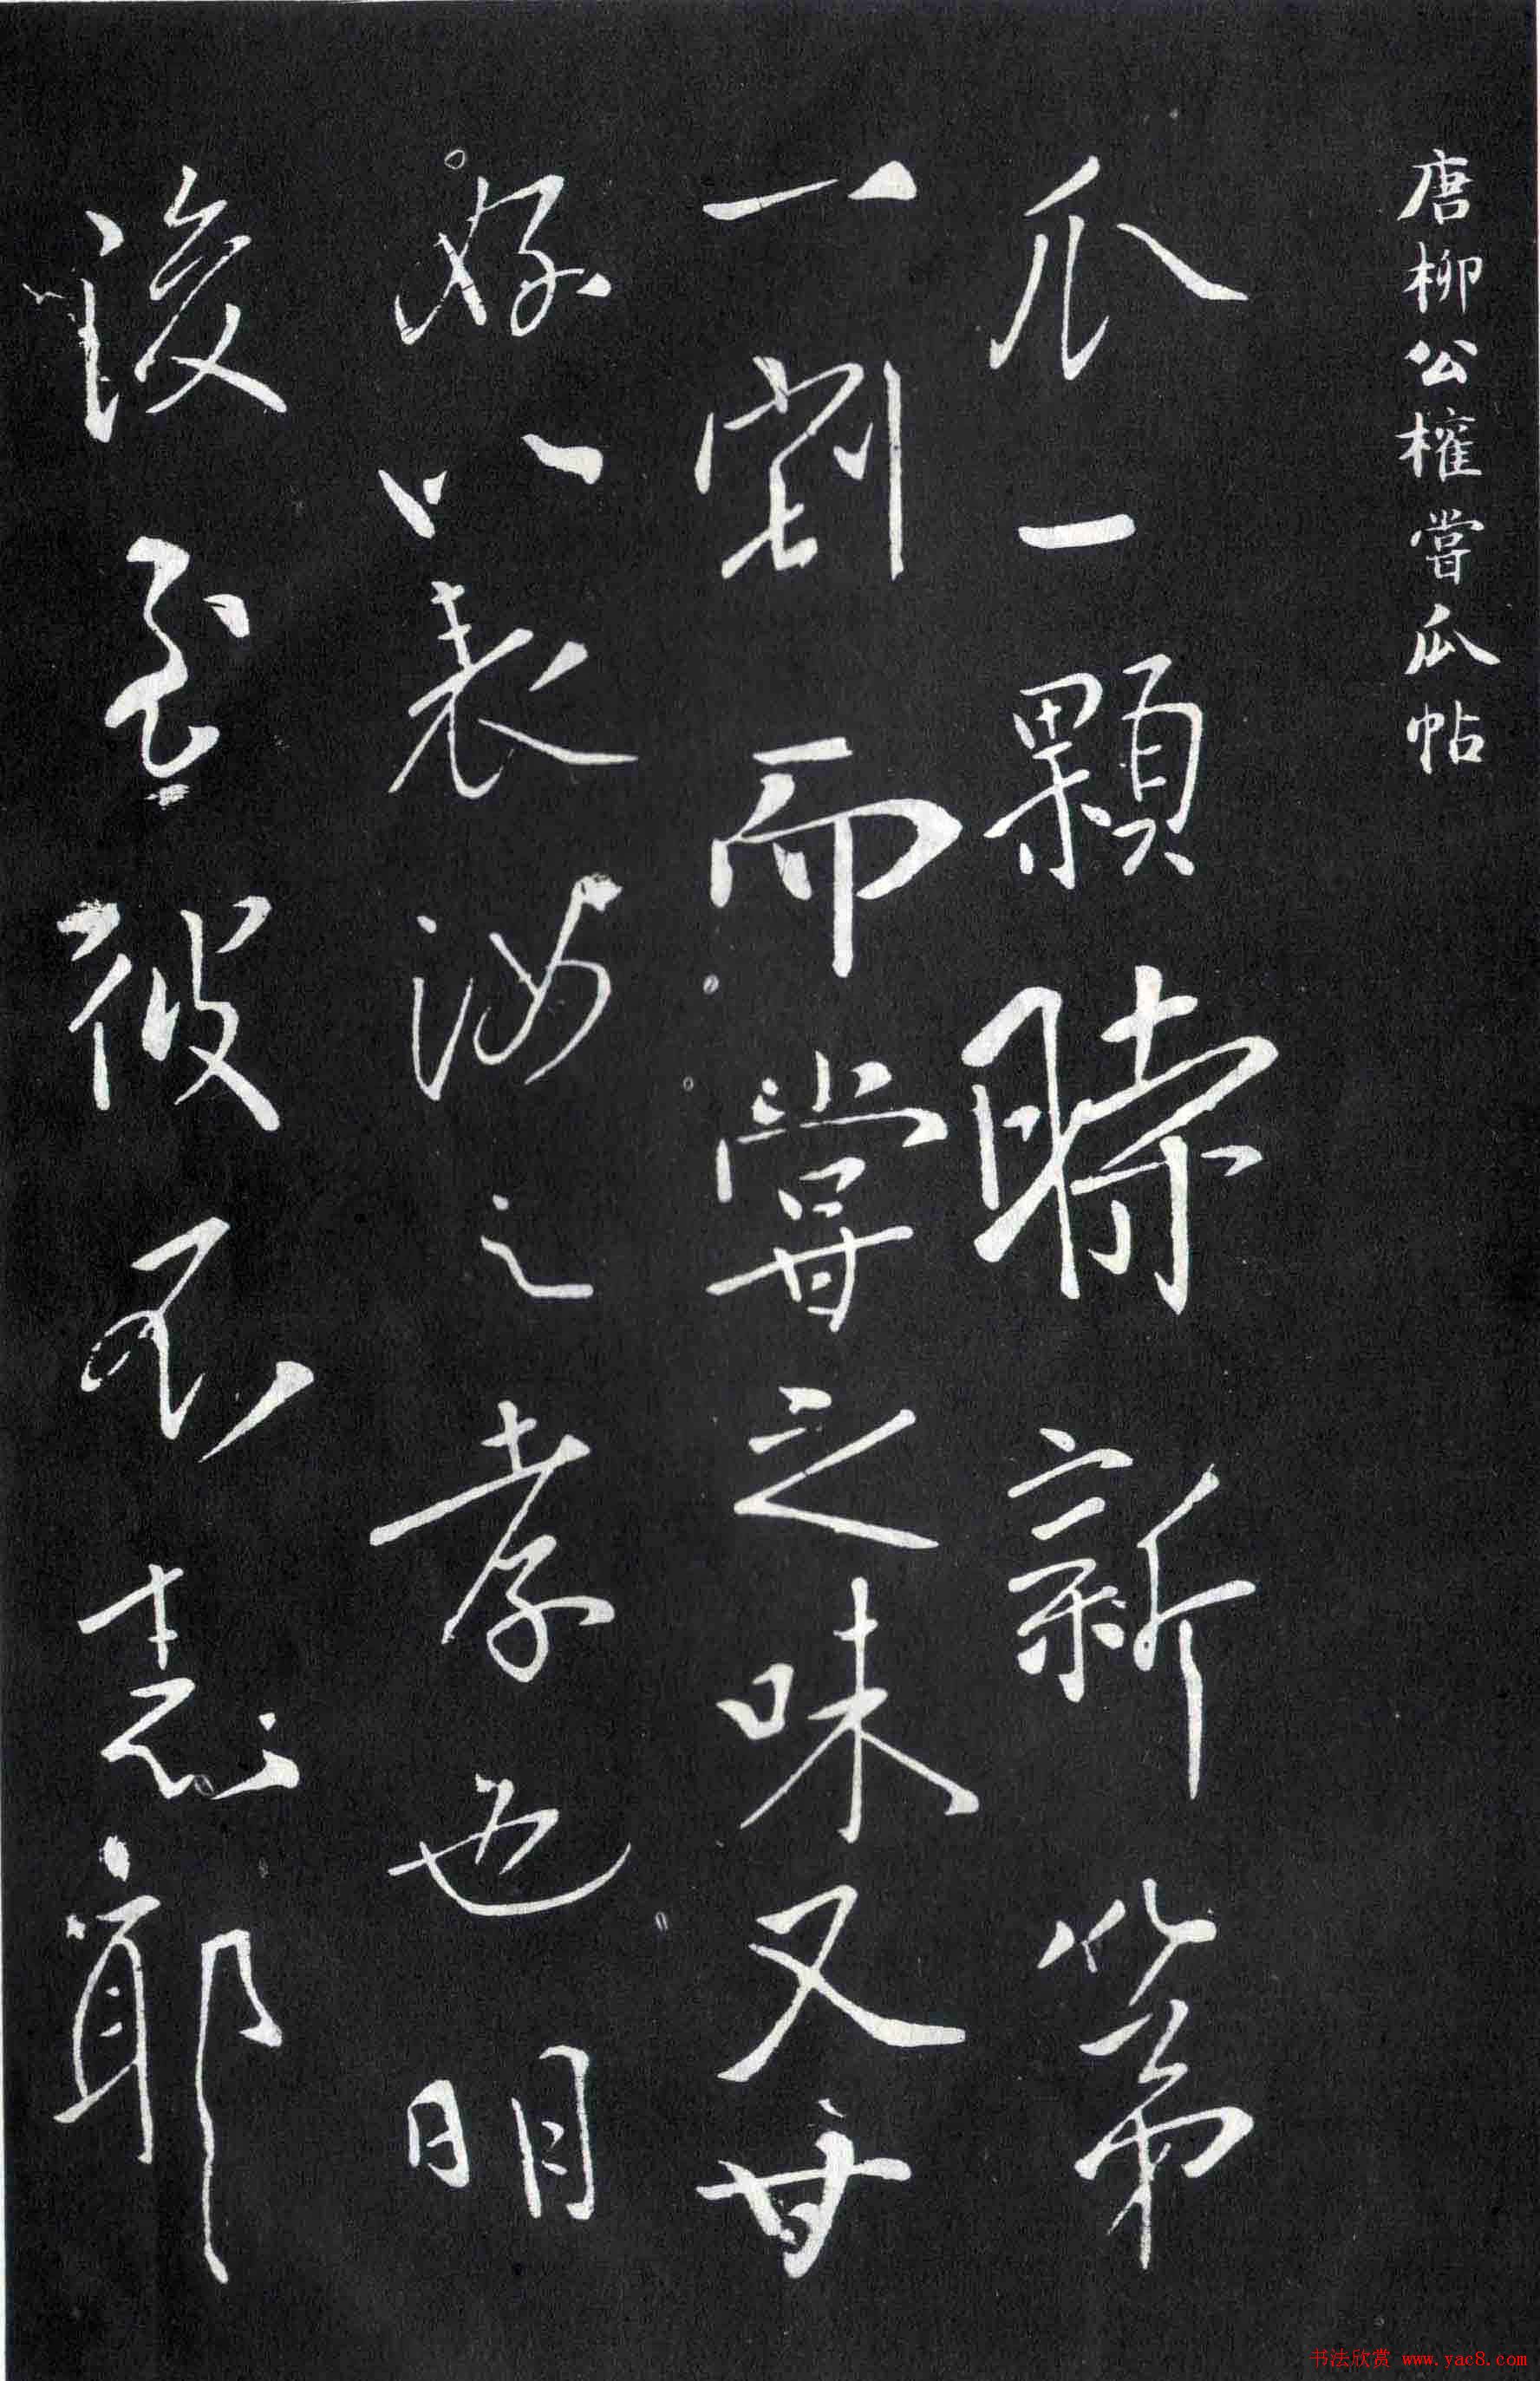 唐柳公權嘗瓜帖
瓜一顆時新新第
一割而嘗之味又甘
好以表汝之孝也明
後至彼不志耶
书法欣赏 www.yac8.com